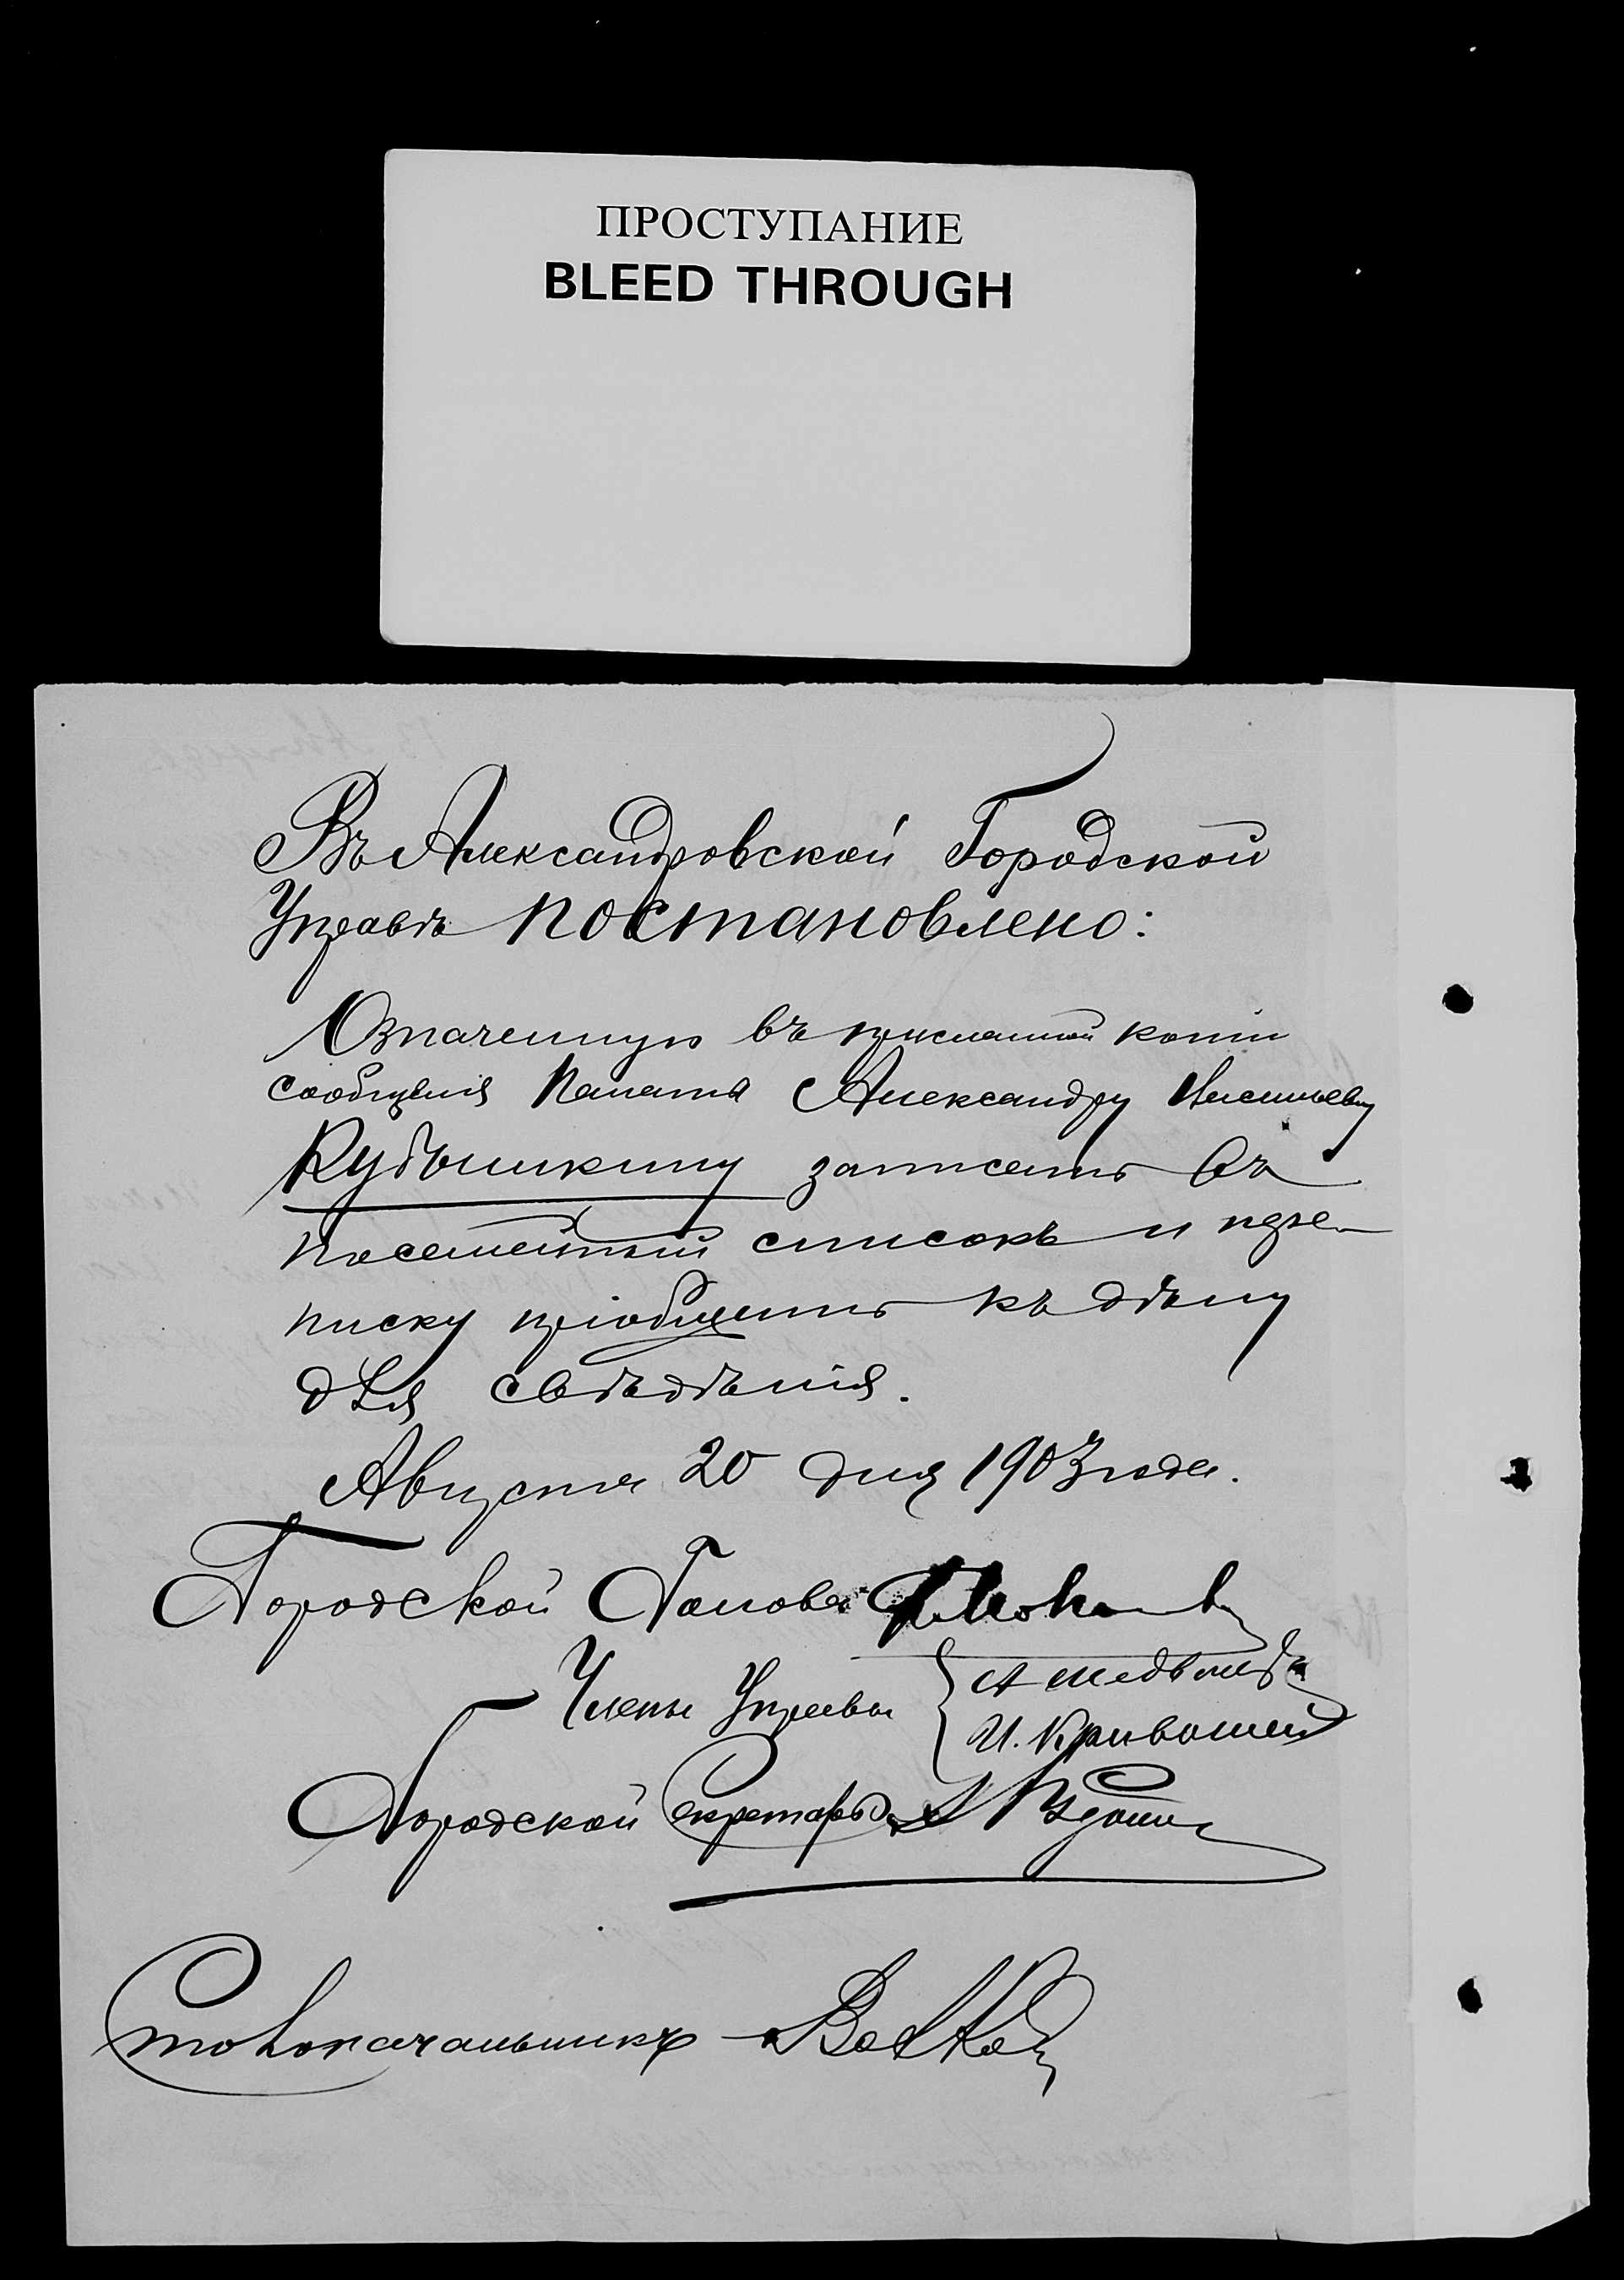 ПРОСТУПАНИЕ
BLEED THROUGH
Въ Александровской Городской
Управѣ постановлено:
Означенную въ присланной копіи
сообщенія Палаты Александру
Кубышкину записать въ
посемейный списокъ и пере-
писку пріобщить къ дѣлу
для свѣдѣнія.
Августа 20 дня 1903 года.
Городской Голова
Члены Управы
И. Кривошей
Городской Секретарь
Столоначальникъ